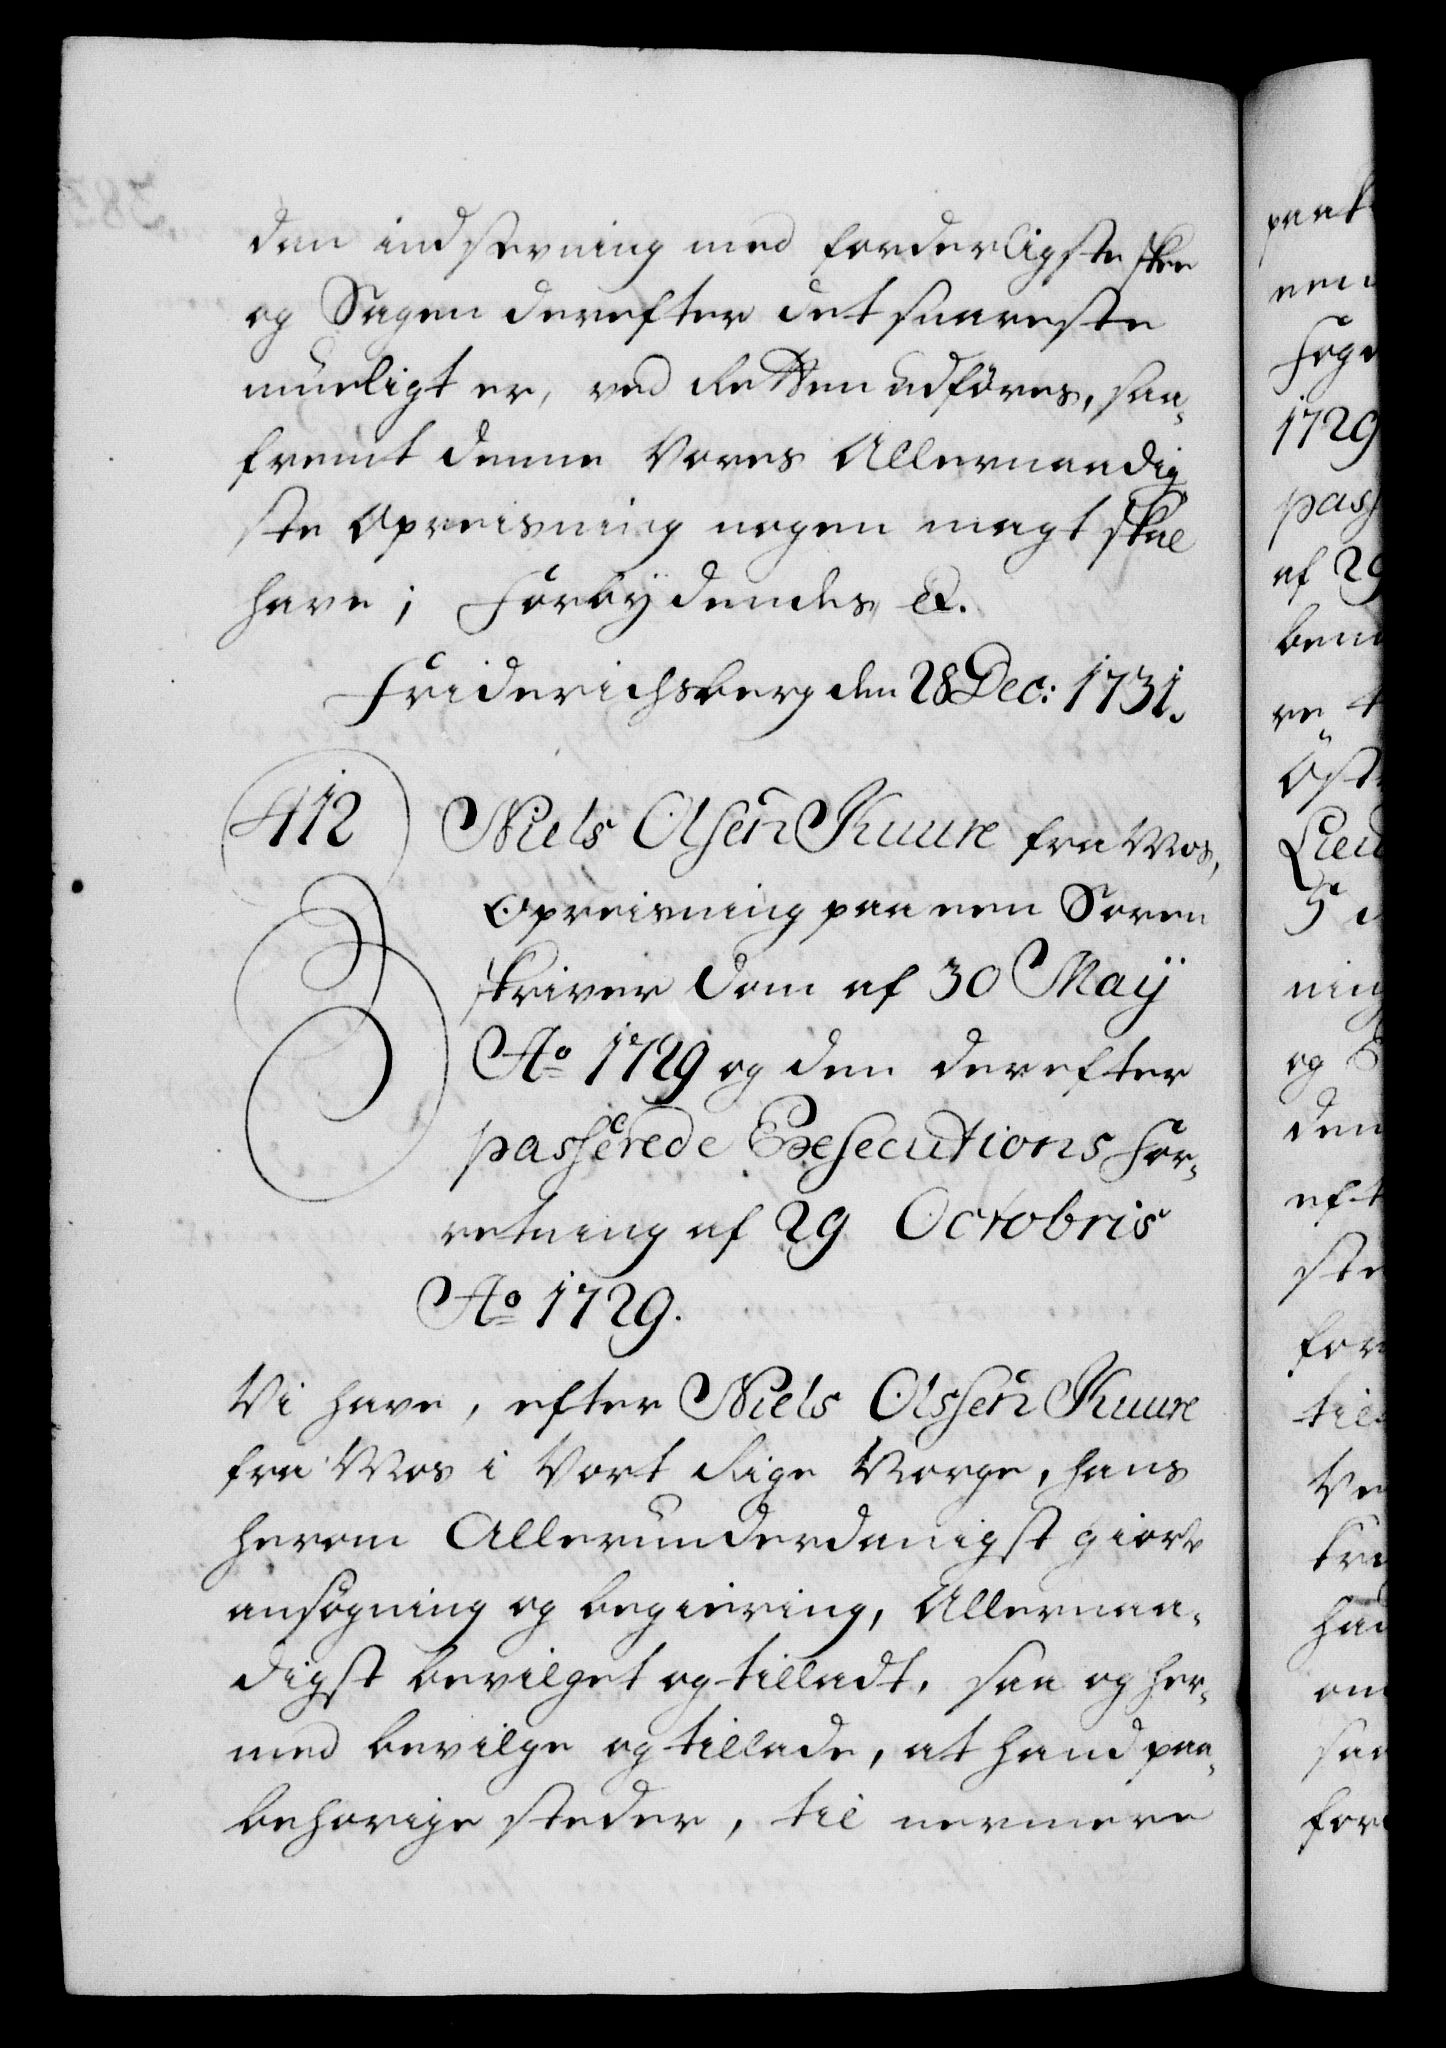 den indstevning med forderligste skee
og Sagen derefter det snareste
mueligt er, ved Retten udföres, saa-
fremt denne Vores Allernaadig
ste Opreisning nogen magt skal
have; Forbydendes &.
Friderichsberg den 28 Dec: 1731.
412
Niels Olsen Kuure fra Mos,
Opreisning paa een Soren
skriver Dom af 30 Maÿ
Ao 1729 og den derefter
passerede Executions For-
retning af 29 Octobris
Ao 1729.
Vi have, efter Niels Olssen Kuure
fra Mos i Vort Rige Norge, hans
herom Allerunderdanigst giorte
ansøgning og begiering, Allernaa-
digst bevilget og tilladt, saa og her-
med bevilge og tillade, at hand paa
behørige steder, til nermere
paak
een
Foge
1729
pass
af 29
bem
re t
Öst
Lieu
5
ning
og
den
eft
ste
for
till
Ve
kra
had
om
saa
for